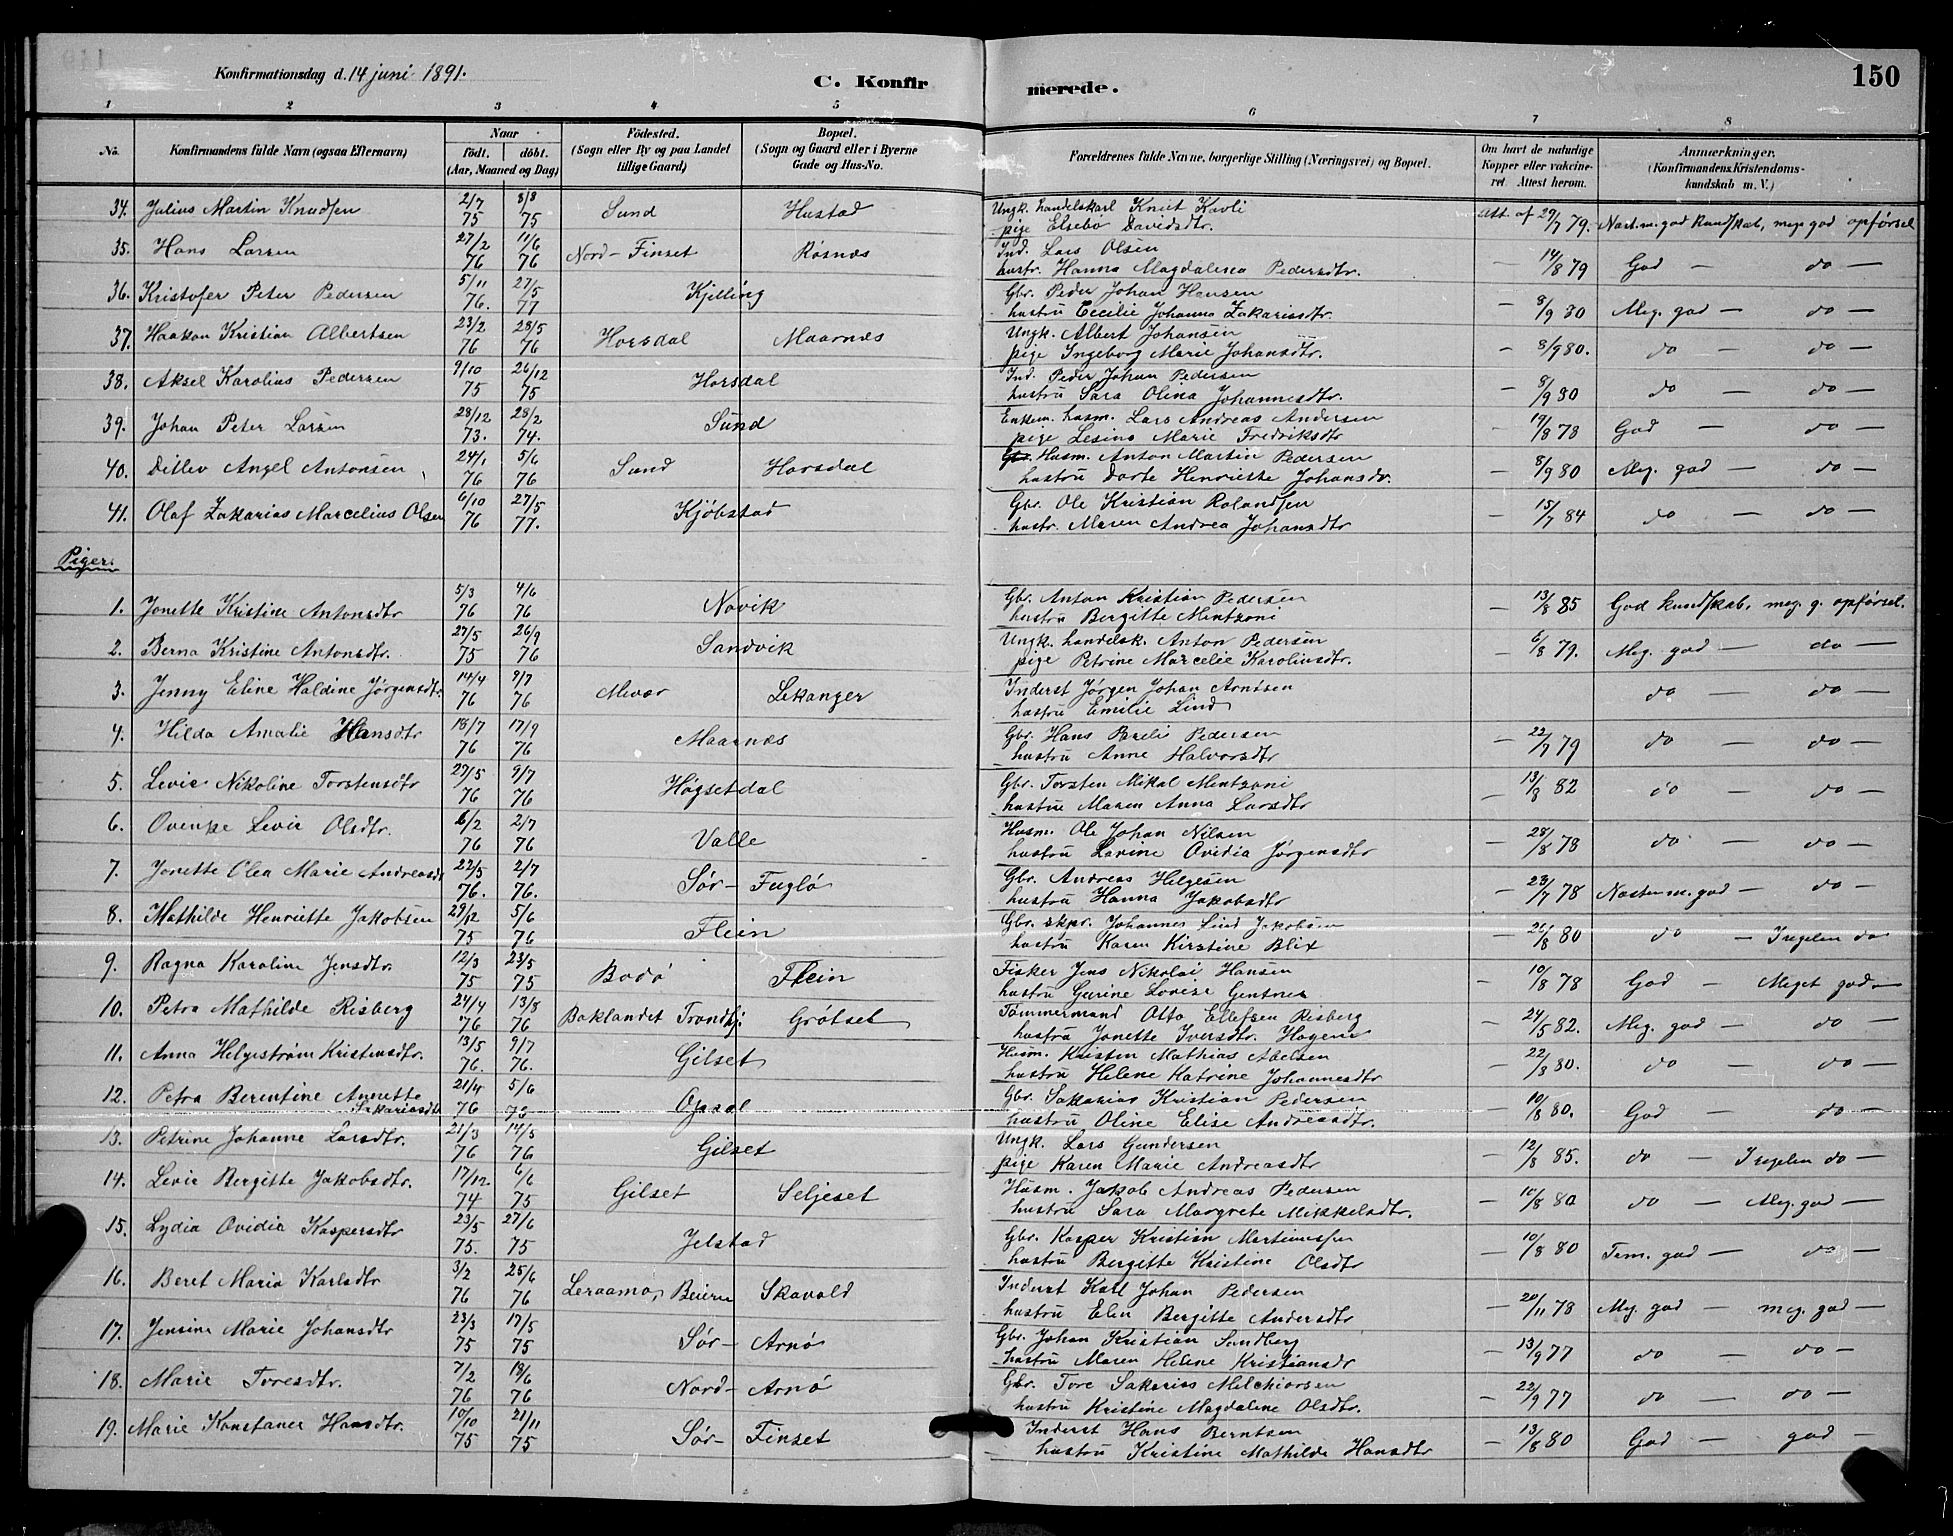 150
Konfirmationsdag d. 14 juni 1891.
C. Konfirmerede.
1 2 3 4 5 6 7 8
No. | Konfirmandens fulde Navn (ogsaa Efternavn) | Naar født. døbt. (Aar, Maaned og Dag) | Fødested. (Sogn eller By og paa Landet tillige Gaard) | Bopæl. (Sogn og Gaard eller i Byerne Gade og Hus-No. | Forældrenes fulde Navne, borgerlige Stilling (Næringsvei) og Bopæl. | Om havt de naturlige Kopper eller vakcineret. Attest herom. | Anmærkninger. (Konfirmandens Kristendomskundskab m. V.)
34. Julius Martin Knudsen 2/7 75 8/8 75 Sund Hustad Ungk. handelskarl Knut Kavli pige Elsebø Davidsdtr. Att. af 29/7 79. Næst. m. god kundskab, meg. god opførsel
35. Hans Larsen 27/2 76 11/6 76 Nord-Finset Røsnes Ind. Lars Olsen hustr. Hanna Magdalena Pedersdtr. — 14/8 79 God — do —
36. Kristofer Peter Pedersen 5/11 76. 27/5 77 Kjelling Gbr. Peder Johan Hansen hustru Cecilie Johanna Zakariasdtr. — 8/9 80 Meg. god — do —
37. Haakon Kristian Albertsen 23/2 76 28/5 76 Horsdal Maarnes Ungk. Albert Johansen pige Ingeborg Marie Johansdtr. — 8/9 80. do — do —
38. Aksel Karolius Pedersen 9/10 75 26/12 75 Horsdal Ind. Peder Johan Pedersen hustru Sara Olina Johannesdtr. — 8/9 80 do — do —
39. Johan Peter Larsen 28/12 73. 28/2 74. Sund Enkem. husm. Lars Andreas Andersen pige Lesina Marie Fredriksdtr — 19/8 78 God — do —
40. Ditlev Angel Antonsen 24/1 76 5/6 76 Sund Horsdal Husm. Anton Martin Pedersen hustru Dorte Henriette Johansdr. — 8/9 80 Meg. god — do —
41. Olaf Zakarias Marcelius Olsen 6/10 76 27/5 77. Kjøbstad Gbr. Ole Kristian Rolandsen hustr. Maren Andrea Johansdtr — 15/7 84 do — do —
Piger.
1. Jonette Kristine Antonsdtr 5/3 76 4/6 76 Novik Gbr. Anton Kristian Pedersen hustru Bergitte Mentzoni — 13/8 85 God kundskab, meg. g. opførsel.
2. Berna Kristine Antonsdtr. 27/5 75 26/9 76 Sandvik Ungk. handelsk. Anton Pedersen pige Petrine Marcelie Karoliusdtr. — 6/8 79. Meg. god — do —
3. Jenny Eline Haldine Jørgensdtr. 14/4 76 9/7 76 Mevær Lekanger Inderst Jørgen Johan Arntsen hustru Emilie Lind do — do —
4. Hilda Amalie Hansdtr 18/7 76 17/9 76 Maarnes Gbr. Hans Pedersen hustru Anne Halvorsdtr — 22/7 79 do — do —
5. Levie Nikoline Torstensdtr 27/5 76 9/7 76 Høgsetdal Gbr. Torsten Mikal Mentzoni hustru Maren Anna Larsdtr — 13/8 82 do — do —
6. Levie Olsdtr. 6/2 76 2/7 76 Valle Husm. Ole Johan Nilsen hustru Lavine Ovidia Jørgensdtr — 28/8 78 do — do —
7. Jonette Olea Marie Andreasdt 22/5 76. 2/7 76. Sør-Fuglø Gbr. Andreas Helgesen hustru Hanna Jakobsdtr — 23/7 78 Næsten m. god — do —
8. Mathilde Henriette Jakobsen 29/12 75 5/6 76 Flein Gbr. skpr. Johannes Lind Jakobsen hustru Karen Kirstine Blix — 26/8 80 do — Iregelen do
9. Ragna Karoline Jensdtr. 12/3 75 23/5 75 Bodø Flein Fisker Jens Nikolai Hansen hustru Gurine Lovise Gentner — 10/8 78 God — Meget god —
10. Petra Mathilde Risberg 24/4 76 13/8 76 Baklandet Trondhj: Grøtset Tømmermand Otto Ellefsen Risberg hustru Jonette Iversdtr. Hagene — 24/5 82. Meg. god — do —
11. Anna Helgestrøm Kristensdtr. 13/5 76. 9/7 76. Gilset Husm. Kristen Mathias Abelsen hustru Helene Katrine Johannesdtr — 22/8 80. do — do —
12. Petra Berentine Annette Sakariasdtr 21/4 76 5/6 76 Opsal Gbr. Sakarias Kristian Pedersen hustru Oline Elise Andreasdtr. — 10/8 80. God — do —
13. Petrine Johanne Larsdtr. 21/3 76 14/5 76 Gilset Ungk. Lars Gundersen pige Karen Marie Andreasdtr — 12/8 85. do — Iregelen do —
14. Levie Bergitte Jakobsdtr. 17/12. 74 6/6 75 Gilset Seljeset Husm. Jakob Andreas Pedersen hustru Sara Margrete Mikkelsdtr. — 10/8 80 do — Meg. god —
15. Lydia Ovidia Kaspersdtr 23/5 75. 27/6 75 Jelstad Gbr. Kasper Kristian Martinussen hustru Bergitte Kristine Olsdtr — 10/8 80 Tem. god — do —
16. Beret Maria Karlsdtr 3/2 76 25/6 76 Leraamo, Beiern Skavold Inderst Karl Johan Pedersen hustru Elen Bergitte Andersdtr — 20/11 78 Meg. god — meg. god —
17. Jensine Marie Johansdtr 23/3 75 17/5 75 Sør-Arnø Gbr. Johan Kristian Sundberg hustru Maren Helene Kristiansdr — 13/9 77 do — do —
18. Marie Toresdtr. 7/2 76 18/6 76 Nord-Arnø Gbr. Tore Sakarias Melchiorsen hustru Kristine Magdalene Olsdtr. — 22/9 77 do — do —
19. Marie Konstance Hansdtr. 10/10 75 21/11 75 Sør-Finset Inderst Hans Berntsen hustru Kristine Mathilde Hansdtr — 13/8 80 God — god —